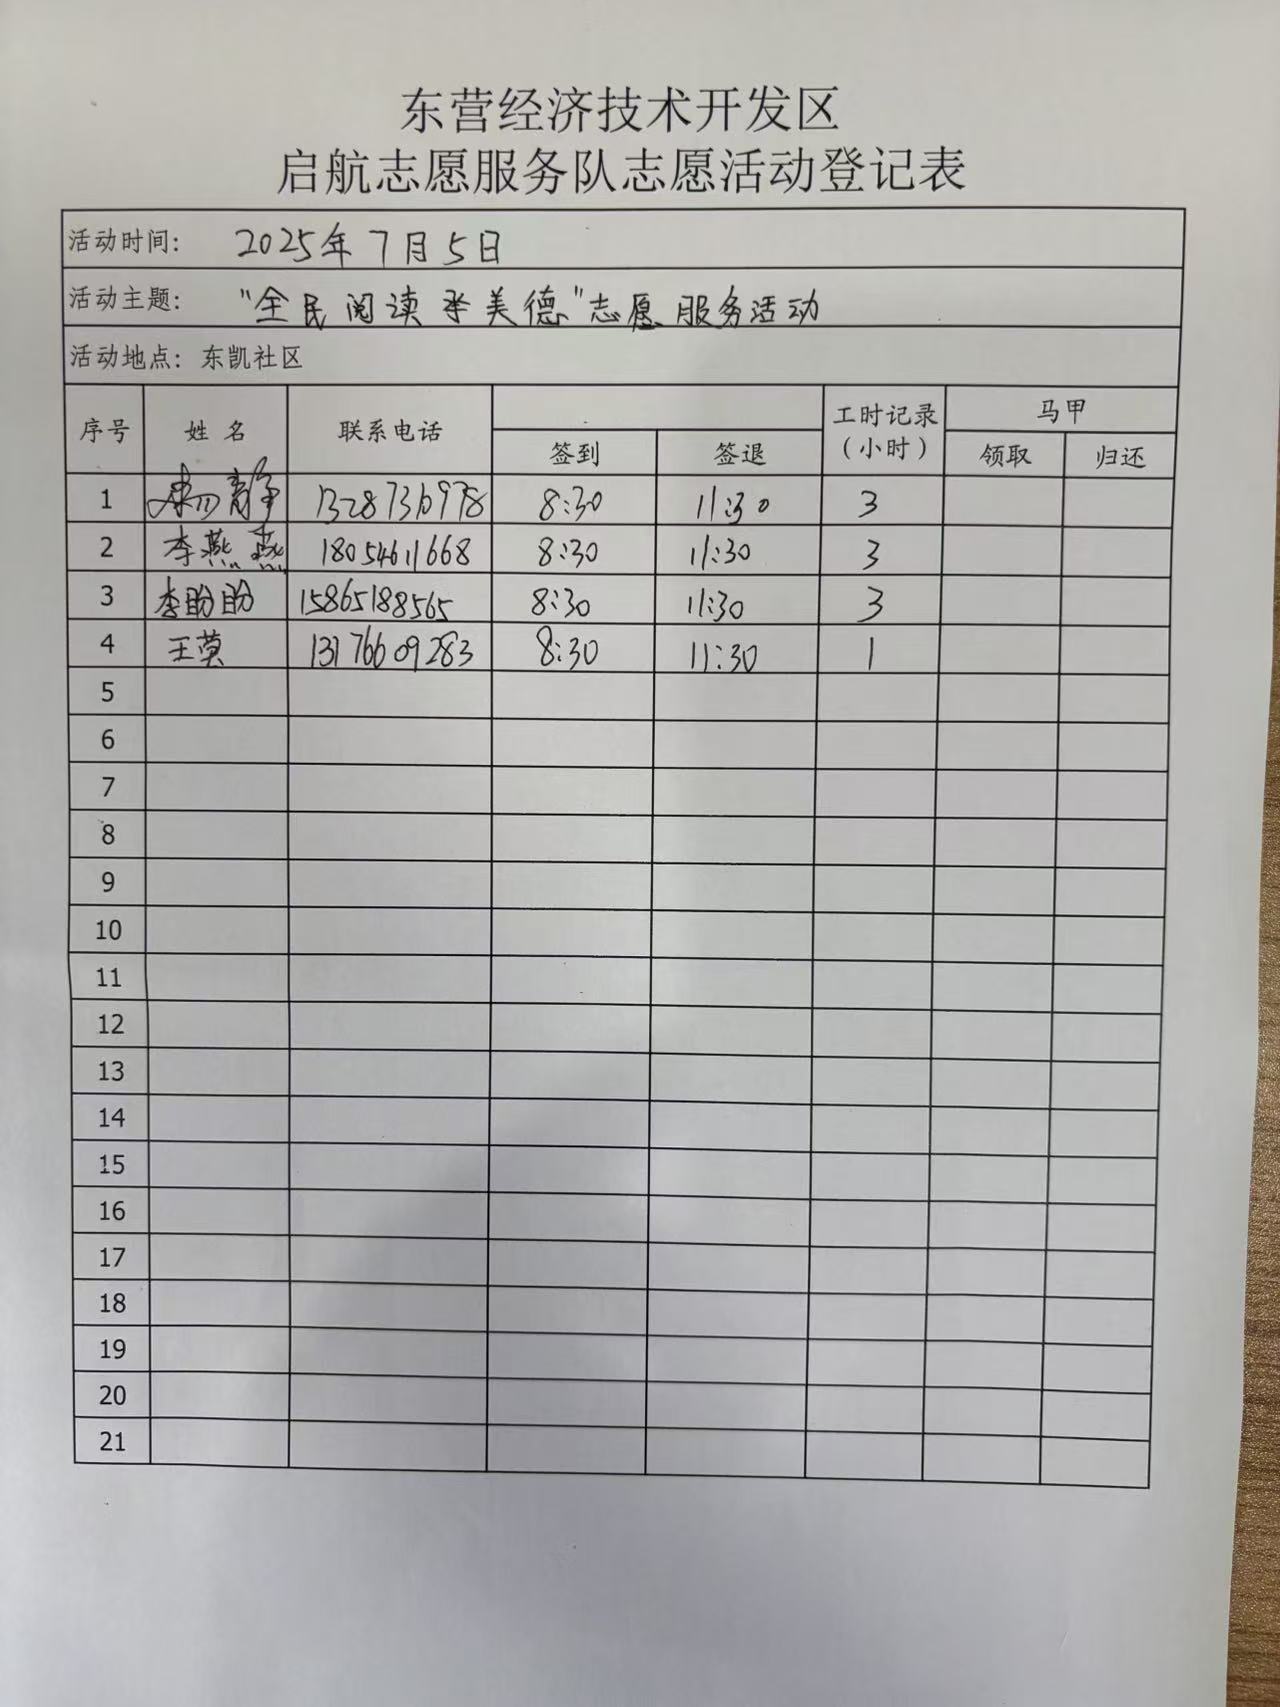 东营经济技术开发区
启航志愿服务队志愿活动登记表
活动时间: 2025年7月5日
活动主题: "全民阅读 季美德"志愿服务活动
活动地点: 东凯社区
序号 姓名 联系电话 工时记录(小时) 马甲
签到 签退 领取 归还
1 8:30 11:30 3
2 李燕燕 18054611668 8:30 11:30 3
3 李盼盼 15865188565 8:30 11:30 3
4 王莫 13176609283 8:30 11:30 1
5
6
7
8
9
10
11
12
13
14
15
16
17
18
19
20
21